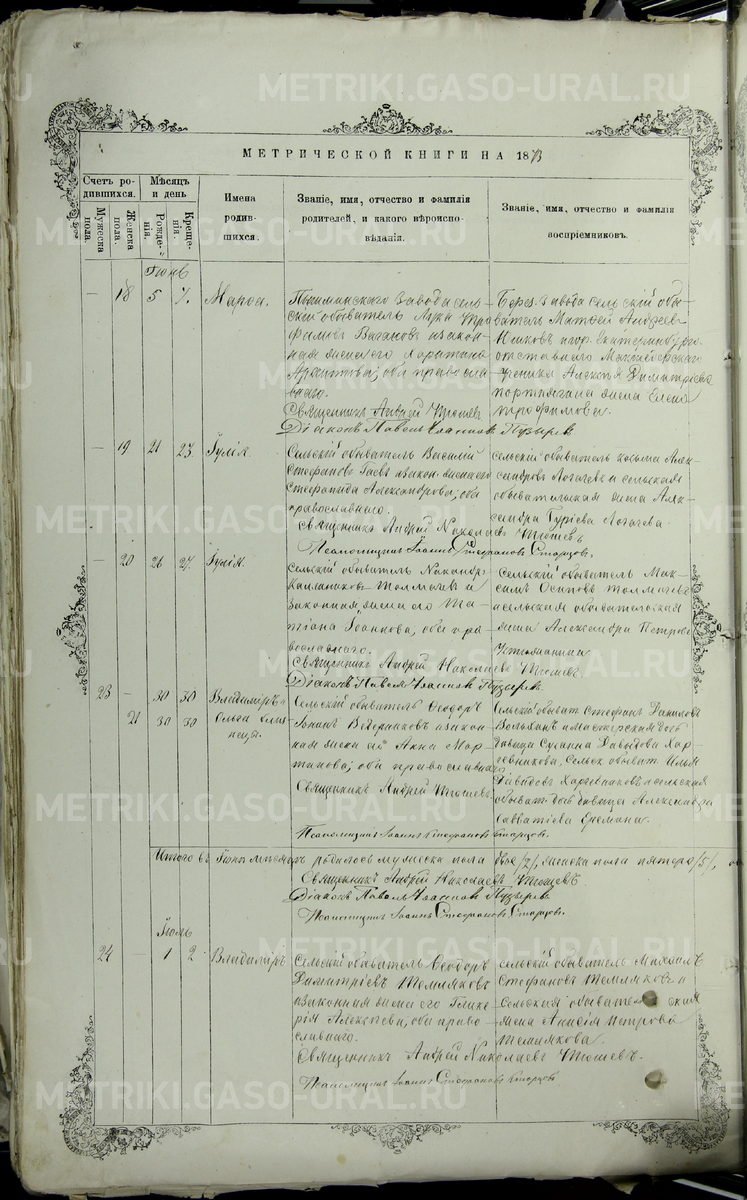 МЕТРИЧЕСКОЙ КНИГИ НА 1873
Счетъ ро-
дившихся.
Мѣсяцъ
и день
Мужеска
пола.
Женска
пола.
Рожде-
нія.
Креще-
нія.
Имена
родив-
шихся.
Званіе, имя, отчество и фамилія
родителей, и какого вѣроиспо-
вѣданія.
Званіе, имя, отчество и фамилія
воспріемниковъ.
Іюнь
— 18 5 7. Марѳа.
Пышминскаго завода сель-
скій обыватель Лука Тро
фимовъ Вагановъ и закон-
ная жена его Харитина
Архипова; оба православ-
наго.
Священникъ Андрей Тюшевъ
Діаконъ Павелъ Пузыревъ
Берез. завода сельскій обы-
ватель Матѳей Андреевъ
и гор. Екатеринбурга
отставнаго
ученика Алексѣя Димитріева
жена Елена
Трофимова.
— 19 21 23. Іулія.
Сельскій обыватель Василій
Стефановъ и закон. жена его
Стефанида Александрова, оба
православнаго.
Священникъ Андрей Николаевъ Тюшевъ
Псаломщикъ Іоаннъ Стефановъ Старцовъ.
Сельскій обыватель Козьма Алек-
сандровъ Логачевъ и сельская
обывательская жена Алек-
сандра Гуріева Логачева.
— 20 26 27. Іулія.
Сельскій обыватель Никандръ
Толмачевъ и
законная жена его Та-
тіана Іоаннова, оба пра-
вославнаго.
Священникъ Андрей Николаевъ Тюшевъ.
Діаконъ Павелъ Пузыревъ
Сельскій обыватель Мак-
симъ Осиповъ Толмачевъ
и сельская обывательская
жена Александра Петрова
23 — 30 30 Владиміръ и
21 30 30 Ольга близ-
нецы.
Сельскій обыватель Ѳеодоръ
и закон-
ная жена его Анна Мар-
тинова; оба православнаго
Священникъ Андрей Тюшевъ
Псаломщикъ Іоаннъ Стефановъ Старцовъ.
Сельскій обыват. Стефанъ Даниловъ
и мастерская
Сусанна Давыдова Хар-
Сельск. обыват. Илья
Давыдовъ и сельская
обыват. Александра
Савватіева Еремина.
Итого въ Іюнѣ мѣсяцѣ родилось мужеска пола двое /2/, женска пола пятеро /5/,
Священникъ Андрей Николаевъ Тюшевъ
Діаконъ Павелъ Пузыревъ
Псаломщикъ Іоаннъ Стефановъ Старцовъ.
Іюль
24 — 1 2 Владиміръ
Сельскій обыватель Ѳеодоръ
Димитріевъ Темляковъ
и законная жена его Глике-
рія Алексѣева, оба право-
славнаго.
Священникъ Андрей Николаевъ Тюшевъ.
Псаломщикъ Іоаннъ Стефановъ Старцовъ
Сельскій обыватель Михаилъ
Стефановъ Темляковъ и
сельская обывательская
жена Анисія Петрова
Темлякова.
METRIKI.GASO-URAL.RU